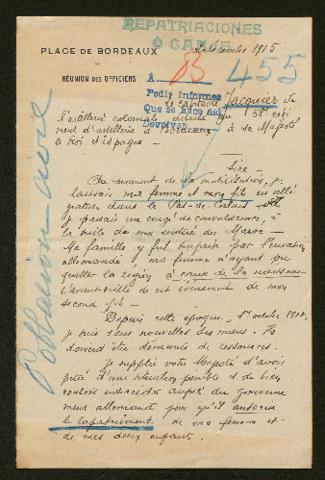 REPATRIACIONES
Ó CANJE
PLACE DE BORDEAUX
RÉUNION DES OFFICIERS
décembre 1915
A 83 455
Pedir informes
Que se haga así
Devolver
Le capitaine Jacquier de
l'artillerie coloniale détaché au 58e régi
ment d'artillerie à Bordeaux à sa Majesté
le Roi d'Espagne -
Sire -
Au moment de la mobilisation, je
laissais ma femme et mon fils en villé
giature dans le Pas-de-Calais -
je passais un congé de convalescence, à
la suite de ma rentrée du Maroc -
Ma famille y fut surprise par l'invasion
allemande, ma femme n'ayant pu
quitter la région à cause de la naissance
de mon
second fils -
Depuis cette époque, 1er octobre 1914,
je suis sans nouvelles des miens. Ils
doivent être démunis de ressources.
Je supplie votre Majesté d'avoir
pitié d'une situation pénible et de bien
vouloir intercéder auprès du Gouverne
ment allemand pour qu'il autorise
le rapatriement de ma femme et
de mes deux enfants.
Poblacion civil